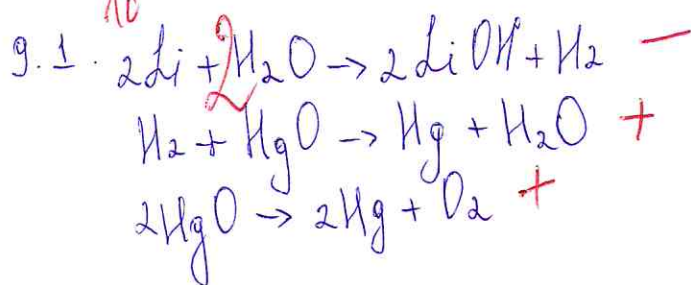 10
9.1. 2Li + 2H₂O → 2LiOH + H₂ −
H₂ + HgO → Hg + H₂O +
2HgO → 2Hg + O₂ +